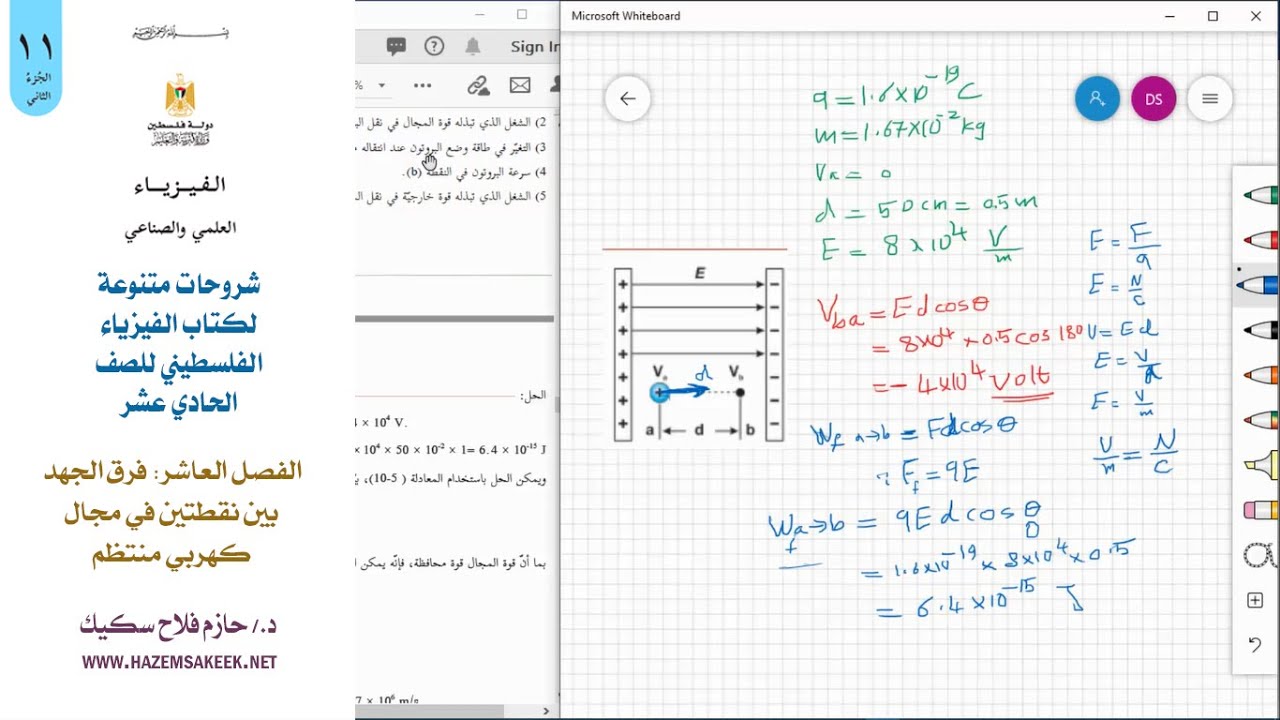 ١١
الجُزءُ
الثاني
دولة فلسطين
وزارة التربية والتعليم
الفيزياء
العلمي والصناعي
شروحات متنوعة
لكتاب الفيزياء
الفلسطيني للصف
الحادي عشر
الفصل العاشر: فرق الجهد
بين نقطتين في مجال
كهربي منتظم
د./ حازم فلاح سكيك
WWW.HAZEMSAKEEK.NET
Sign In
%
2) الشغل الذي تبذله قوة المجال في نقل
3) التغيّر في طاقة وضع البروتون عند انتقاله
4) سرعة البروتون في النقطة (b).
5) الشغل الذي تبذله قوة خارجيّة في نقل
الحل:
× 10⁴ V.
× 10⁴ × 50 × 10⁻² × 1= 6.4 × 10⁻¹⁵ J
ويمكن الحل باستخدام المعادلة (10-5)،
بما أنّ قوة المجال قوة محافظة، فإنّه يمكن
7 × 10⁶ m/s
Microsoft Whiteboard
DS
q = 1.6×10⁻¹⁹ C
m = 1.67×10⁻² kg
Va = 0
d = 50cm = 0.5m
E = 8×10⁴ V/m
E = F/q
E = N/C
V = Ed
E = V/d
E = V/m
V/m = N/C
Vba = Ed cosθ
= 8×10⁴ × 0.5 cos 180
= - 4×10⁴ Volt
Wf a→b = Fd cosθ
∵ Ff = qE
Wf a→b = qEd cosθ
0
= 1.6×10⁻¹⁹ × 8×10⁴ × 0.5
= 6.4×10⁻¹⁵ J
E
Va
d
Vb
a
d
b